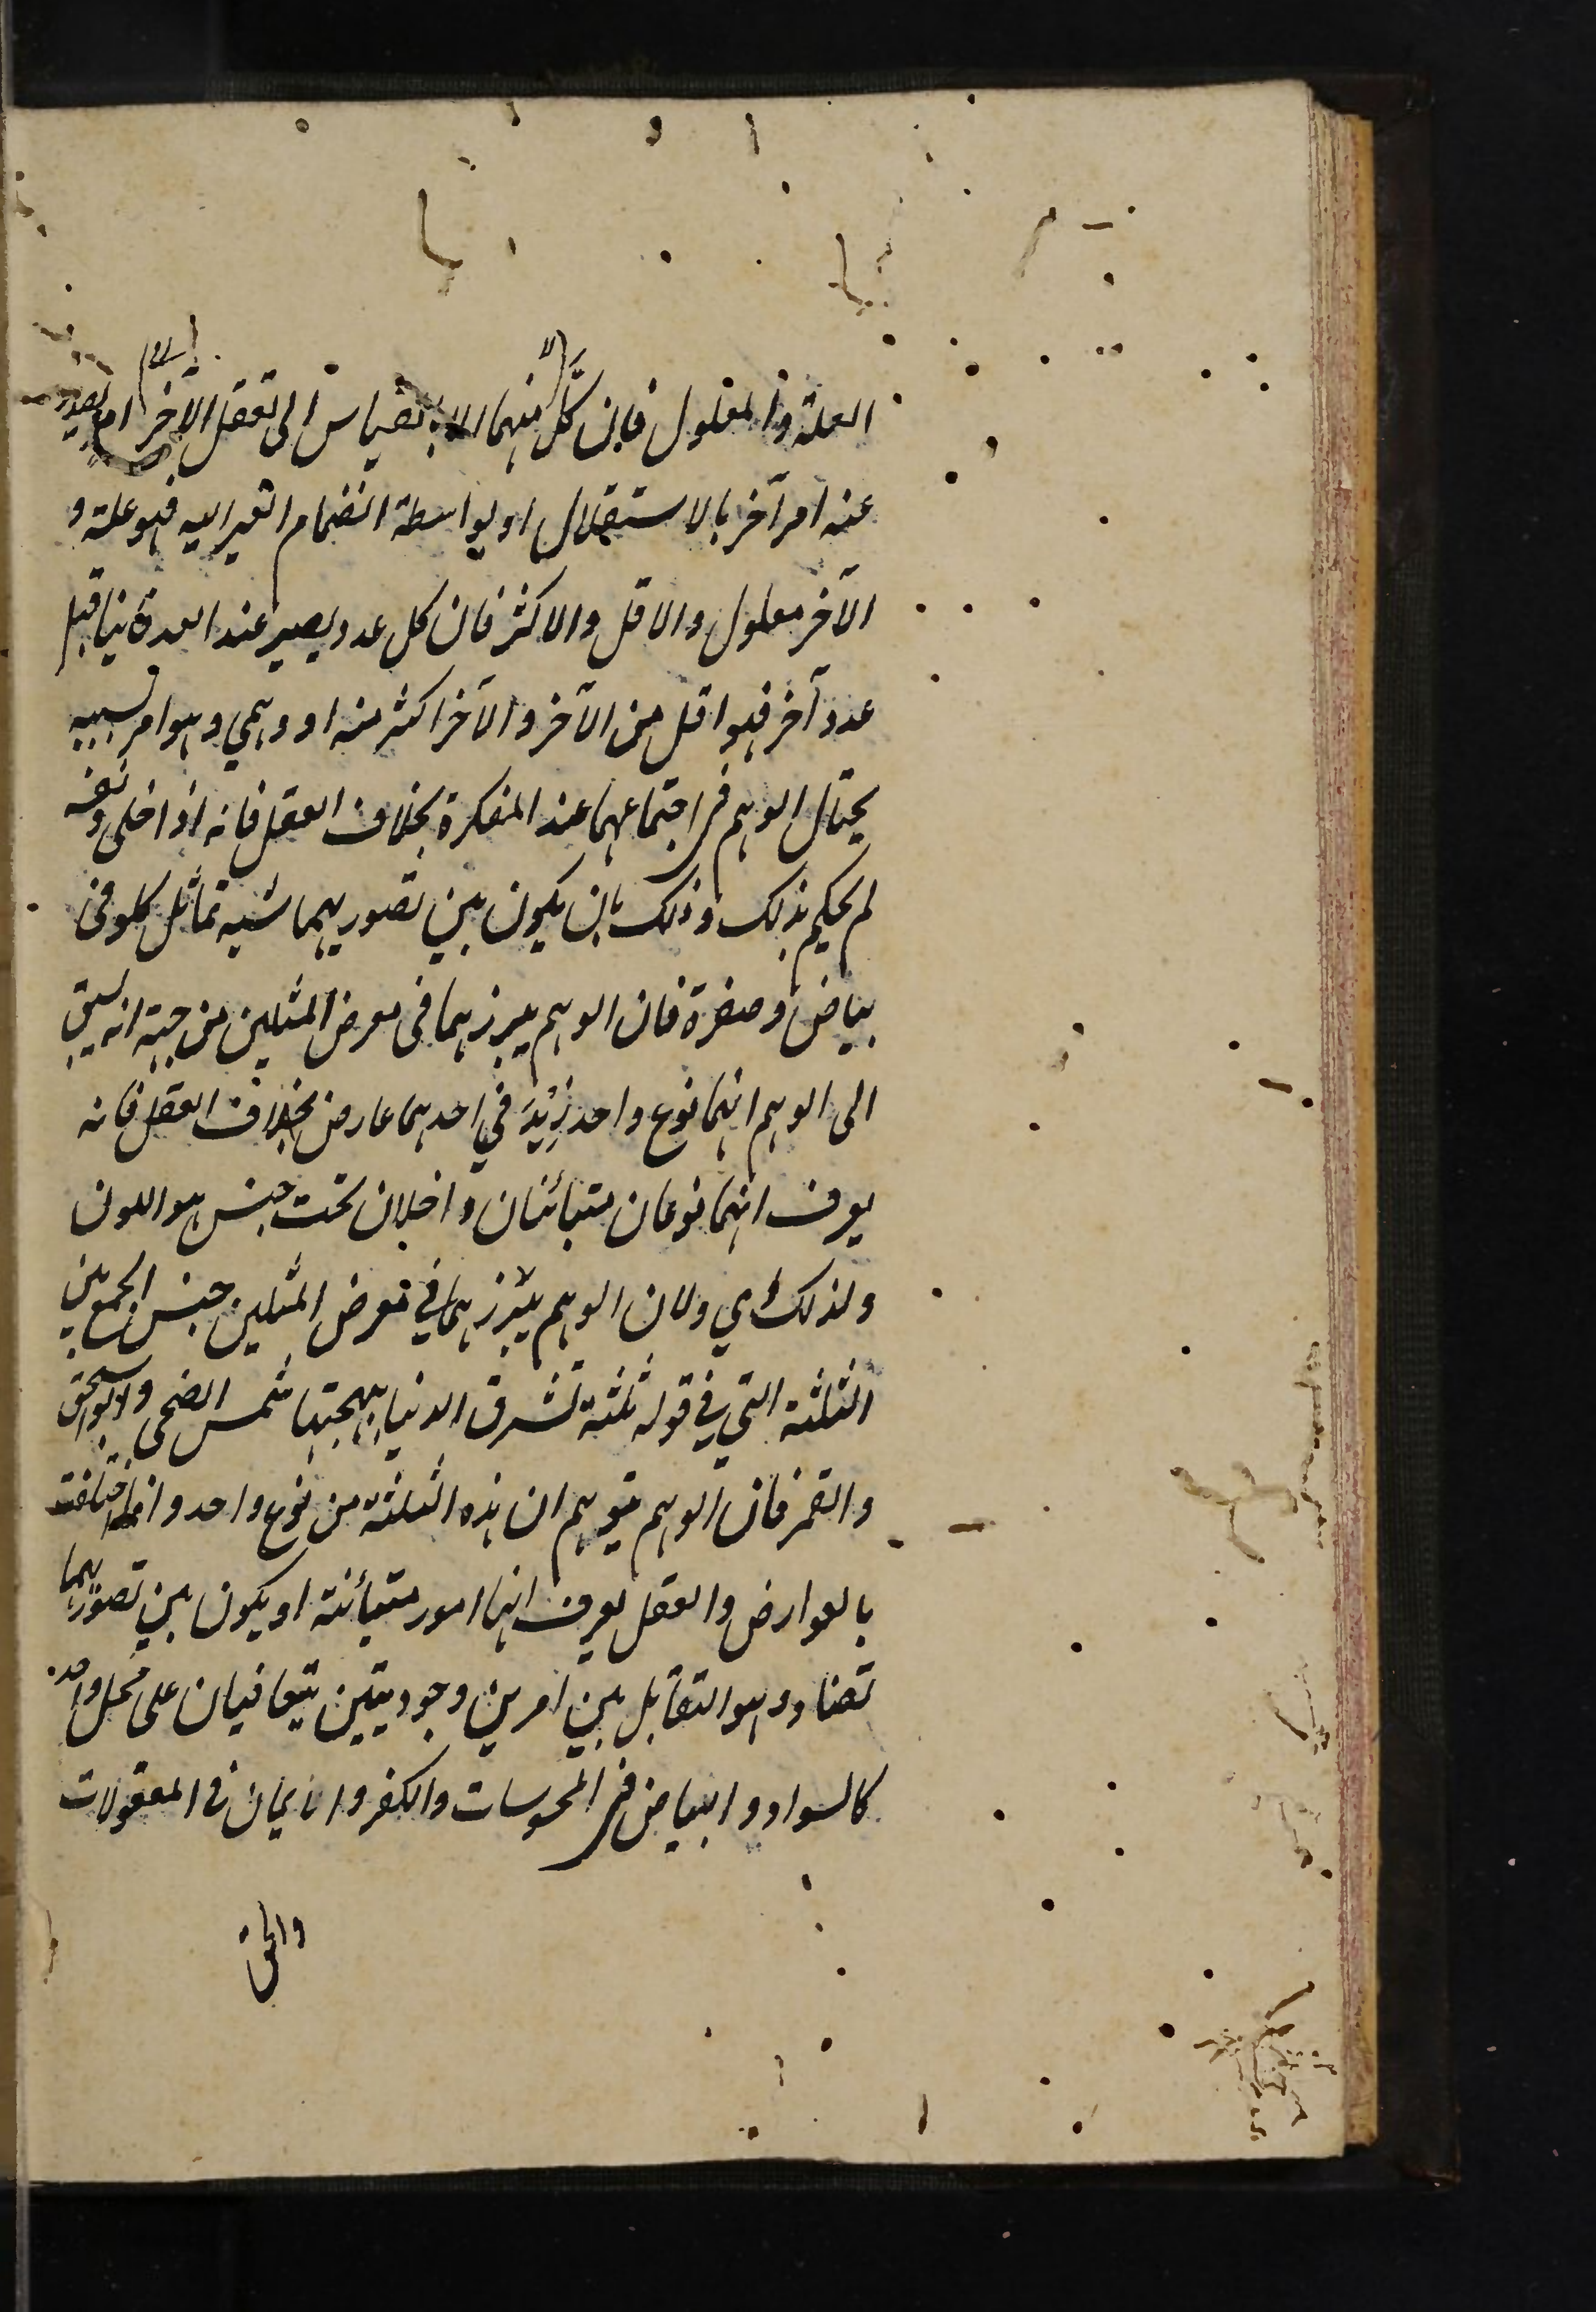 العلة والمعلول فان كل منهما الا بالقياس الى تعقل الآخر امر يصدر
عنه امر آخر بالاستقلال او بواسطة انضمام الغير اليه فهو علة و
الآخر معلول والاقل والاكثر فان كل عدد يصير عند العد فانيا قبل
عدد آخر فهو اقل من الآخر والآخر اكثر منه او وهمي وهو امر بسببه
يحتال الوهم في اجتماعهما عند المفكرة بخلاف العقل فانه اذا خلى ونفسه
لم يحكم بذلك وذلك بان يكون بين تصوريهما شبه تماثل كلونى
بياض وصفرة فان الوهم يبرزهما فى معرض المثلين من جهة انه يسبق
الى الوهم انهما نوع واحد زيد في احدهما عارض بخلاف العقل فانه
يعرف انهما نوعان متبائنان داخلان تحت جنس هو اللون
ولذلك اي ولان الوهم يبرزهما في معرض المثلين حسن الجمع بين
الثلثة التي في قوله ثلثة تشرق الدنيا ببهجتها شمس الضحى وابو اسحق
والقمر فان الوهم يتوهم ان هذه الثلثة من نوع واحد وانما اختلفت
بالعوارض والعقل يعرف انها امور متبائنة او يكون بين تصوريهما
تضاد وهو التقابل بين امرين وجوديين يتعاقبان على محل واحد
كالسواد والبياض في المحسوسات والكفر والايمان فى المعقولات
والحق